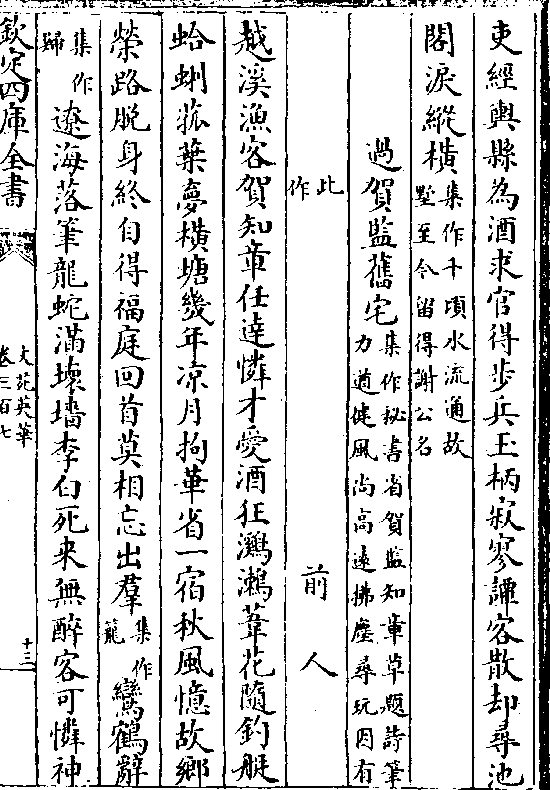 吏經輿縣為酒求官得步兵玉柄寂寥譚客散却尋池
閣淚縱横集作千頃水流通故
墅至今留得謝公名
過賀監舊宅集作秘書省賀監知章草題詩筆
力遒健風尚高遠拂塵尋玩因有
此
作
前人
越溪漁客賀知章任達憐才愛酒狂鸂鶒葦花隨釣艇
蛤蜊菰葉夢横塘幾年凉月拘華省一宿秋風憶故鄉
榮路脱身終自得福庭回首莫相忘出羣集作
籠鸞鶴辭
集作
歸遼海落筆龍蛇滿壊墻李白死来無醉客可憐神
欽定四庫全書
文苑英華
卷三百七
十三